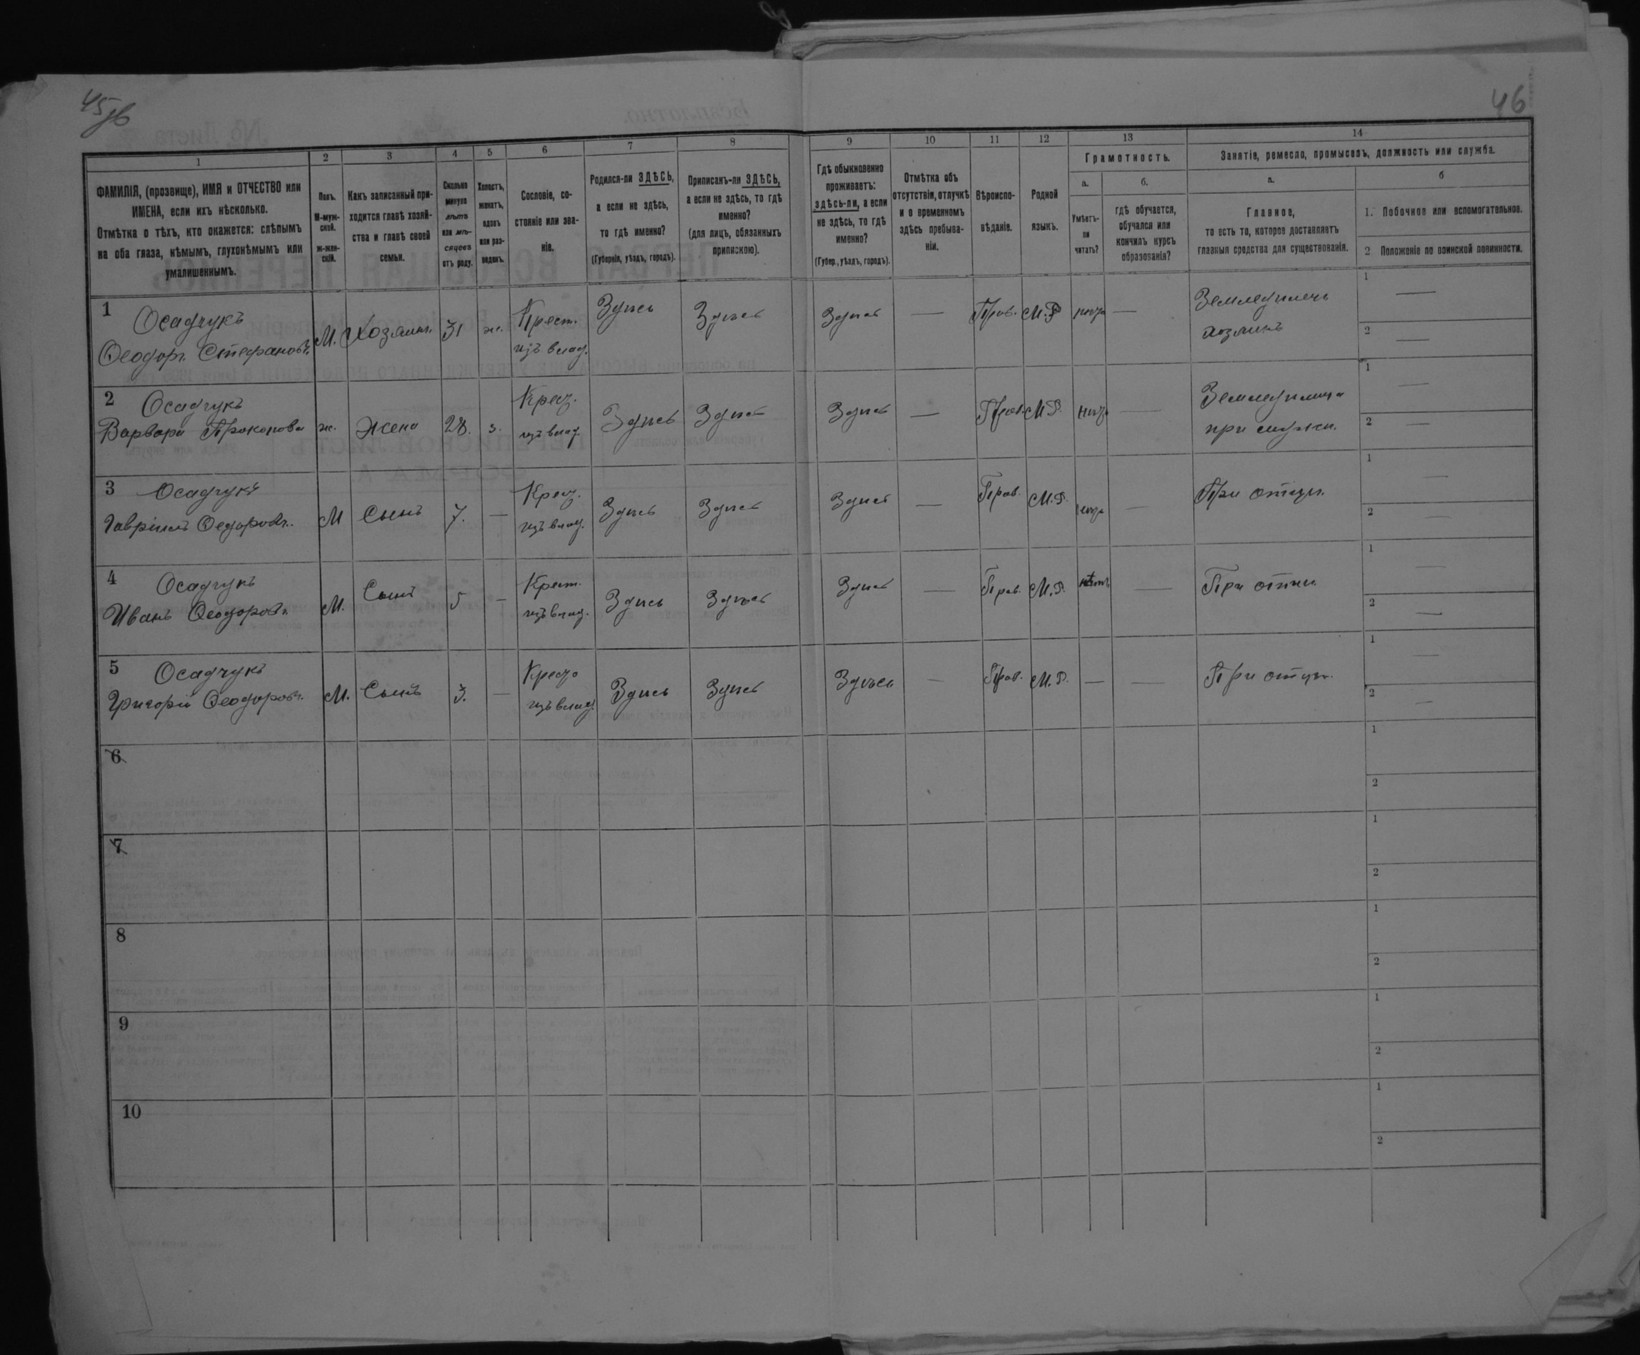 45об
46
1
2
3
4
5
6
7
8
9
10
11
12
13
14
ФАМИЛІЯ, (прозвище), ИМЯ и ОТЧЕСТВО или
ИМЕНА, если ихъ нѣсколько.
Отмѣтка о тѣхъ, кто окажется: слѣпымъ
на оба глаза, нѣмымъ, глухонѣмымъ или
умалишеннымъ.
Полъ.
М-муж-
ской.
ж-жен-
скій.
Какъ записанный при-
ходится главѣ хозяй-
ства и главѣ своей
семьи.
Сколько
минуло
лѣтъ
или мѣ-
сяцевъ
отъ роду.
Холостъ,
женатъ,
вдовъ
или раз-
веденъ.
Сословіе, со-
стояніе или зва-
ніе.
Родился-ли ЗДѢСЬ,
а если не здѣсь,
то гдѣ именно?
(Губернія, уѣздъ, городъ).
Приписанъ-ли ЗДѢСЬ,
а если не здѣсь, то гдѣ
именно?
(для лицъ, обязанныхъ
припискою).
Гдѣ обыкновенно
проживаетъ:
здѣсь-ли, а если
не здѣсь, то гдѣ
именно?
(Губер., уѣздъ, городъ).
Отмѣтка объ
отсутствіи, отлучкѣ
и о временномъ
здѣсь пребыва-
ніи.
Вѣроиспо-
вѣданіе.
Родной
языкъ.
Грамотность.
а.
Умѣетъ-
ли
читать?
б.
гдѣ обучается,
обучался или
кончилъ курсъ
образованія?
Занятіе, ремесло, промыселъ, должность или служба.
а.
Главное,
то есть то, которое доставляетъ
главныя средства для существованія.
б
1. Побочное или вспомогательное.
2 Положеніе по воинской повинности.
1 Осадчукъ
Ѳеодоръ Стефановъ. М. Хозяинъ 31 ж. Крест. изъ влад. Здѣсь Здѣсь Здѣсь — Прав. М.Р. — Земледѣлецъ хозяинъ 1 — 2 —
2 Осадчукъ
Варвара Прокопова ж. Жена 28. з. Крест. изъ влад. Здѣсь Здѣсь Здѣсь — Прав. М.Р. — Земледѣлица при мужѣ. 1 — 2 —
3 Осадчукъ
Гавріилъ Ѳедоровъ. М Сынъ 7. — Крест. изъ влад. Здѣсь Здѣсь Здѣсь — Прав. М.Р. — При отцѣ. 1 — 2 —
4 Осадчукъ
Иванъ Ѳеодоровъ М. Сынъ 5 — Крест. изъ влад. Здѣсь Здѣсь Здѣсь — Прав. М.Р. нѣтъ — При отцѣ 1 — 2 —
5 Осадчукъ
Григорій Ѳеодоровъ. М. Сынъ 3. — Крест. изъ влад. Здѣсь Здѣсь Здѣсь — Прав. М.Р. — — При отцѣ. 1 — 2 —
6 1 2
7 1 2
8 1 2
9 1 2
10 1 2